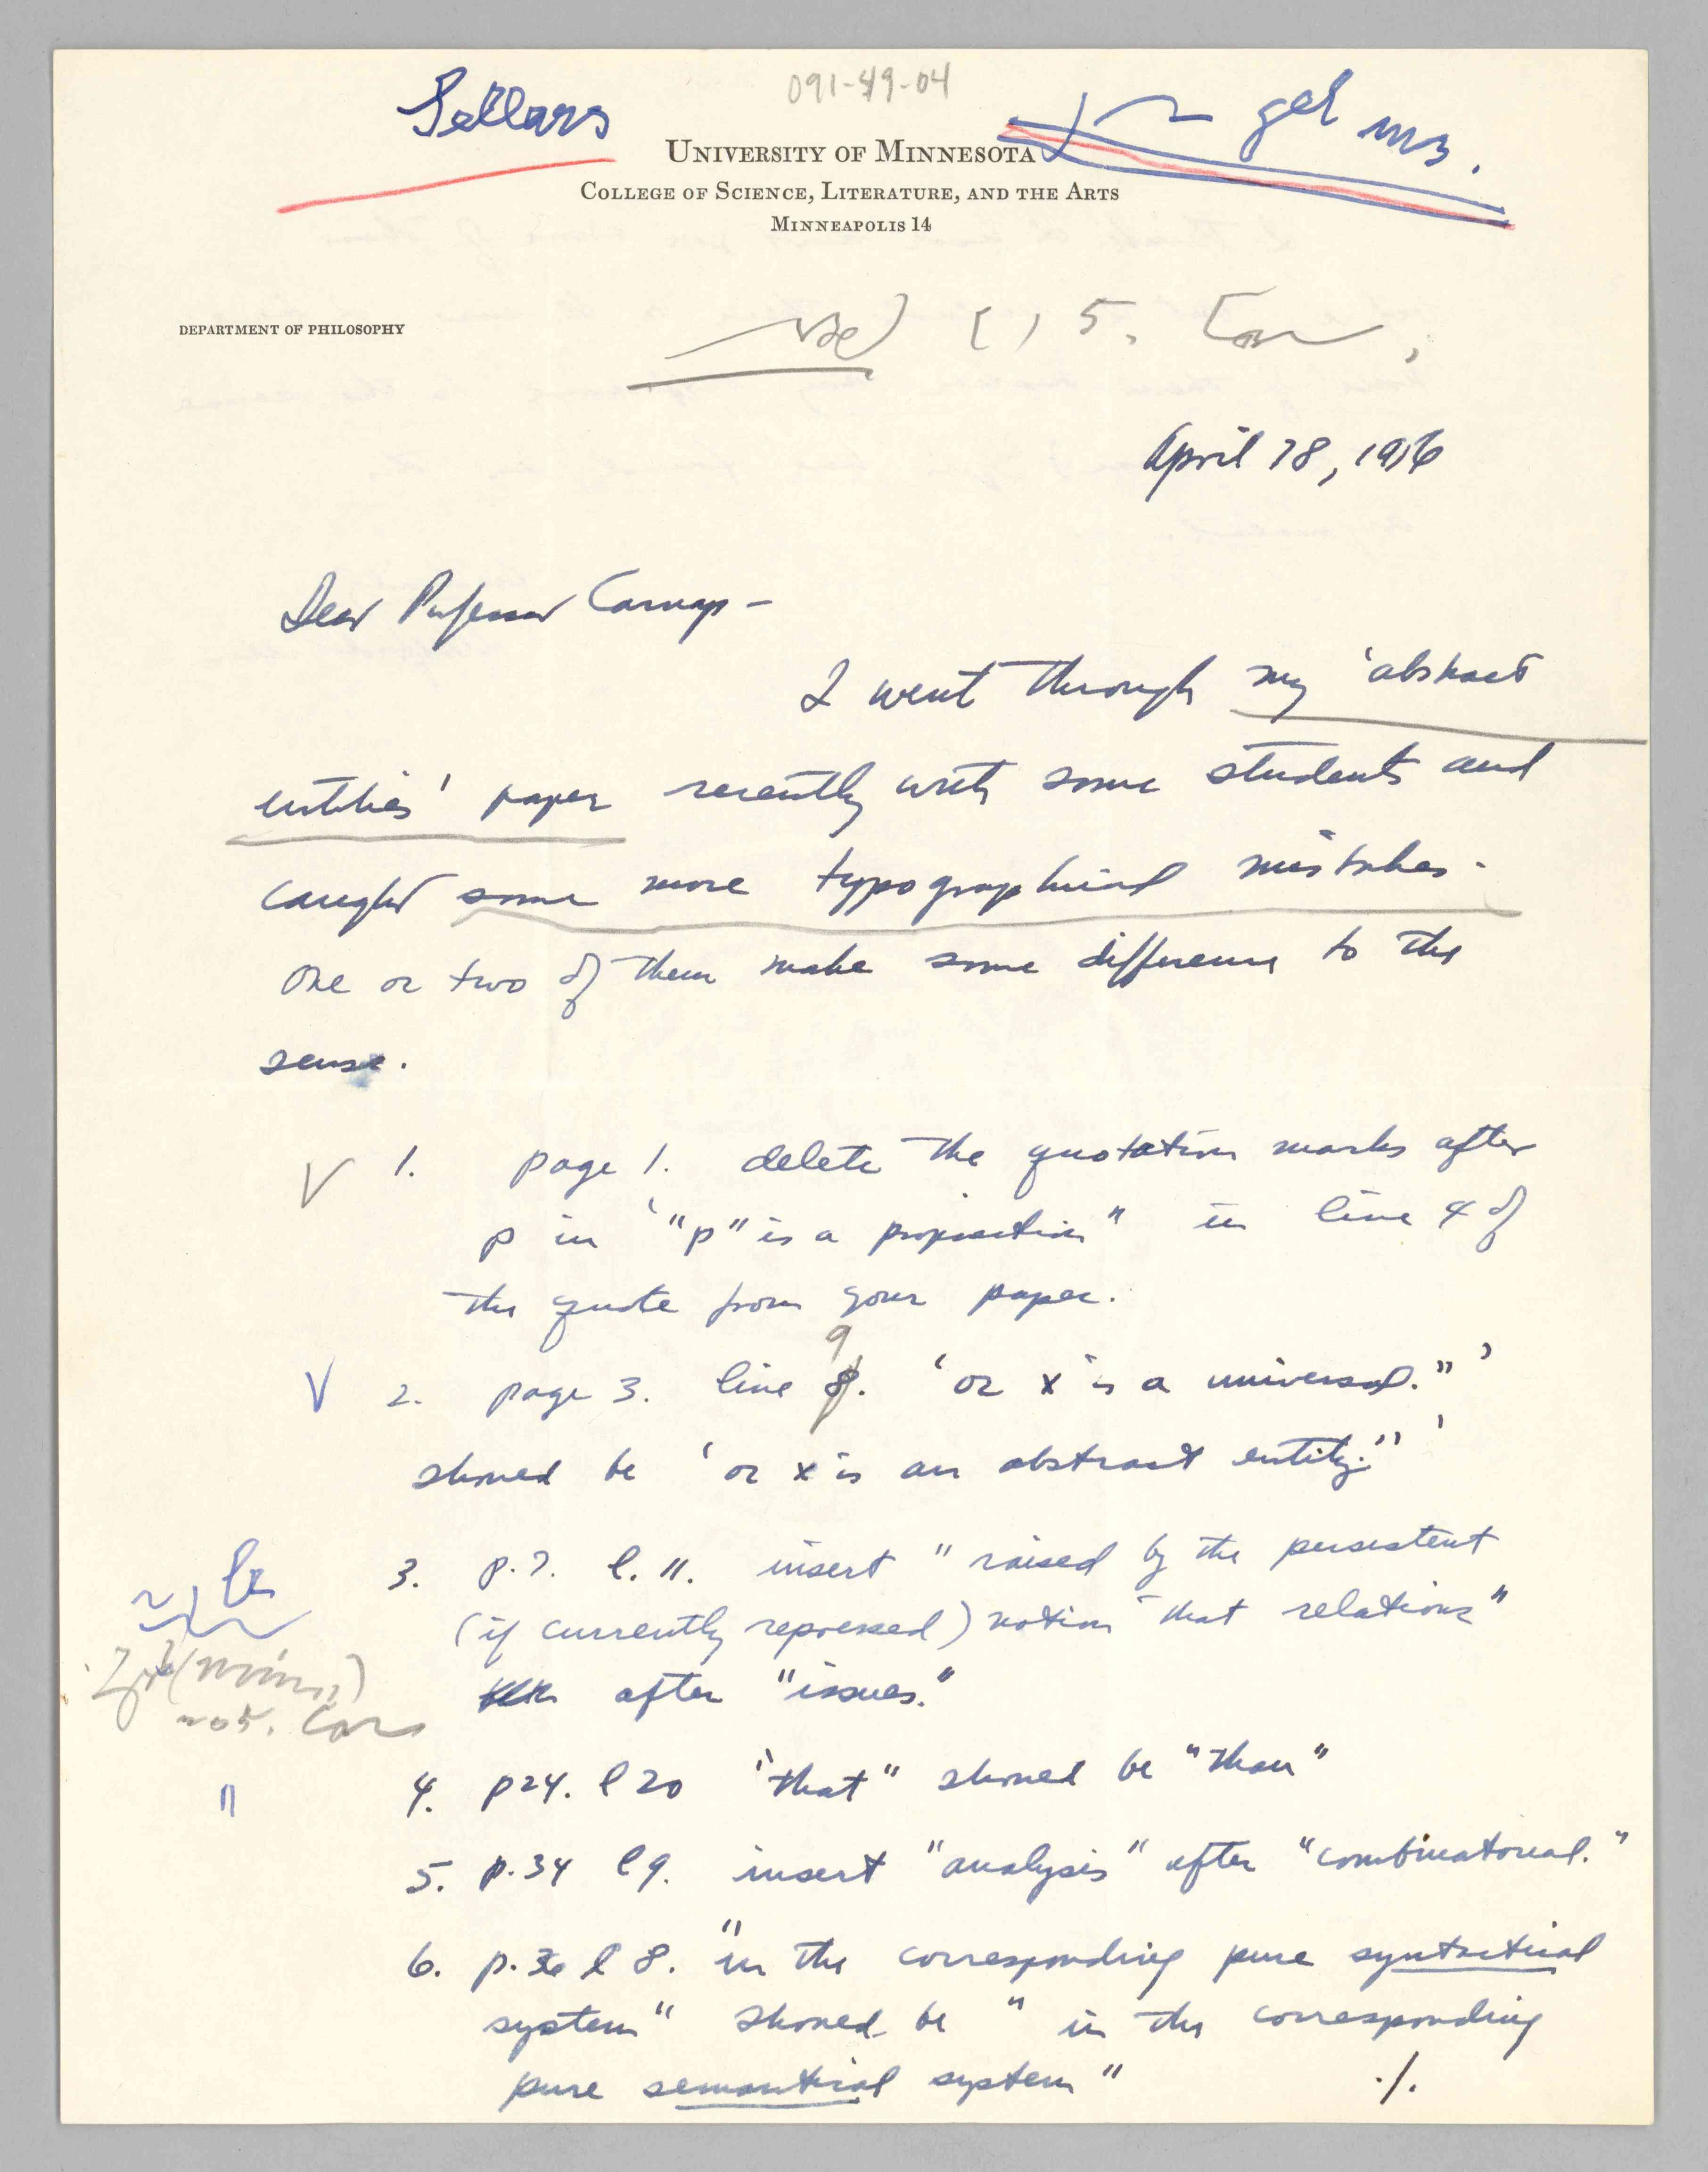 091-49-04
Sellars
gel ms.
UNIVERSITY OF MINNESOTA
COLLEGE OF SCIENCE, LITERATURE, AND THE ARTS
MINNEAPOLIS 14
DEPARTMENT OF PHILOSOPHY
April 28, 1956
Dear Professor Carnap -
I went through my 'abstract
entities' paper recently with some students and
caught some more typographical mistakes.
One or two of them make some difference to the
sense.
V 1. page 1. delete the quotation marks after
p in '"p" is a proposition" in line 4 of
the quote from your paper.
9
V 2. page 3. line 8. 'or x is a universal."'
should be 'or x is an abstract entity."'
3. p.7. l.11. insert "raised by the persistent
(if currently repressed) notion that relations"
after "issues."
4. p24. l 20 "that" should be "than"
5. p.34 l 9. insert "analysis" after "combinatorial."
6. p.36 l 8. "in the corresponding pure syntactical
system" should be "in the corresponding
pure semantical system"
./.